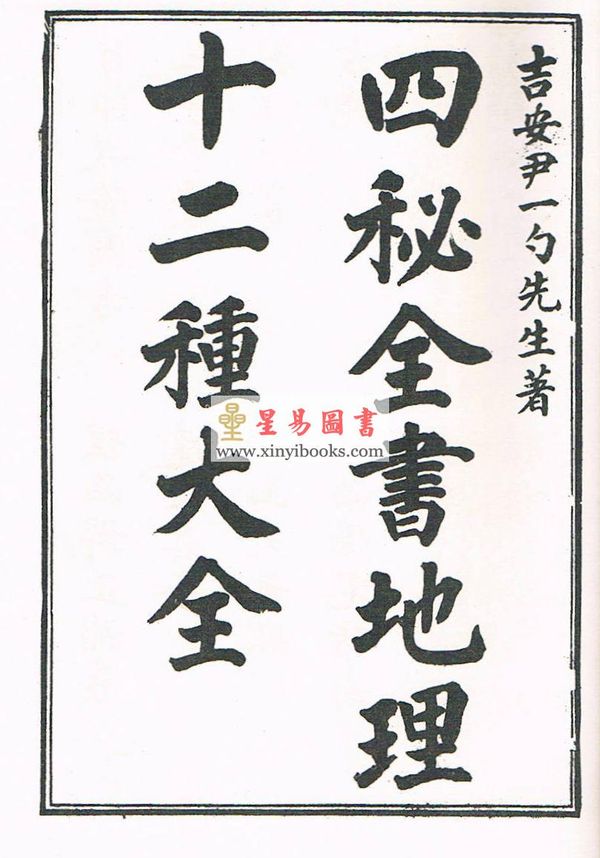 吉安尹一勺先生著
四秘全書地理
十二種大全
星易圖書
www.xinyibooks.com